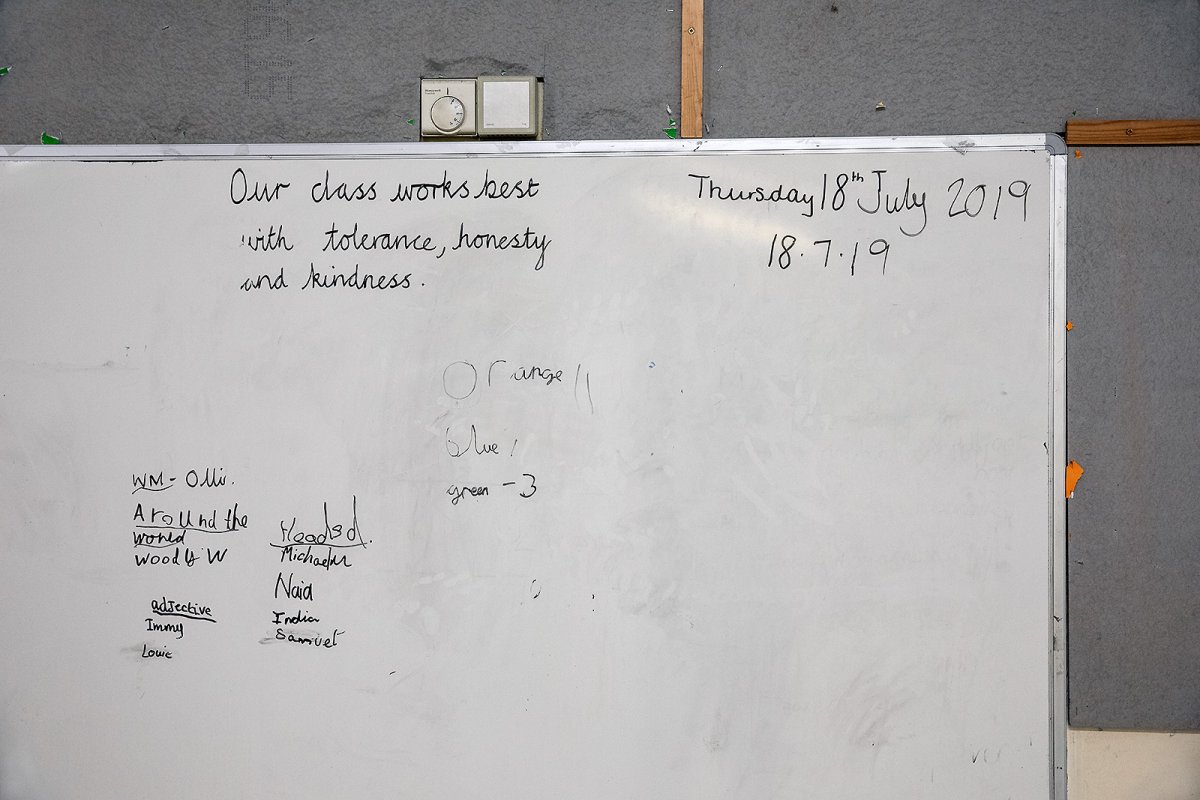 Our class works best
with tolerance, honesty
and kindness.
Thursday 18th July 2019
18.7.19
Orange 11
blue 1
green - 3
WM - Olli.
Around the
world
Woody W
adjective
Immy
Louie
Michael
Naia
India
Samuel